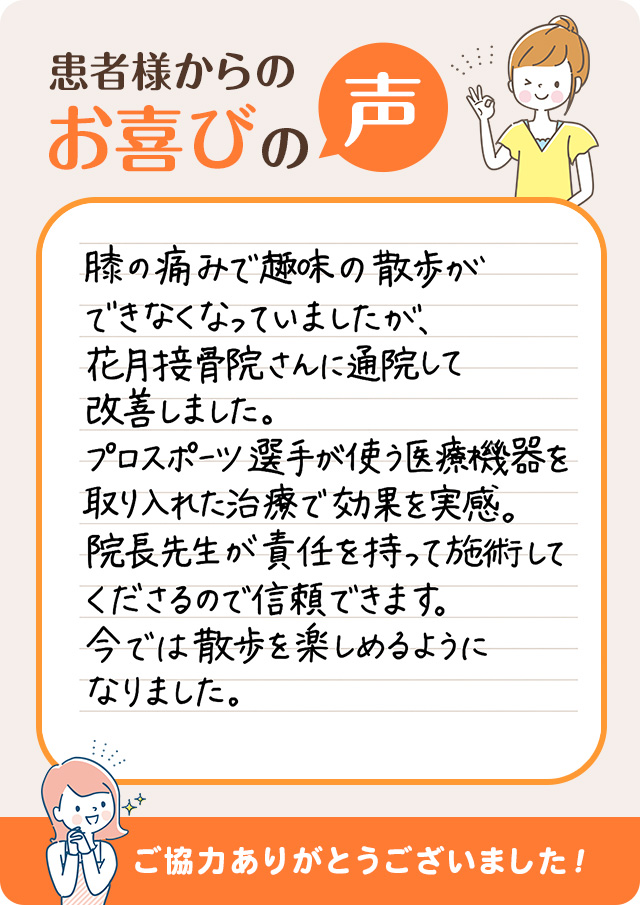 患者様からの
お喜びの声
膝の痛みで趣味の散歩が
できなくなっていましたが、
花月接骨院さんに通院して
改善しました。
プロスポーツ選手が使う医療機器を
取り入れた治療で効果を実感。
院長先生が責任を持って施術して
くださるので信頼できます。
今では散歩を楽しめるように
なりました。
ご協力ありがとうございました!